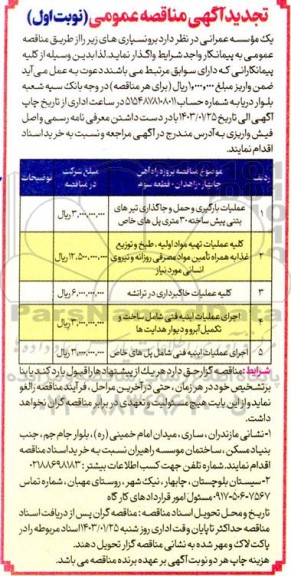 تجدید آگهی مناقصه عمومی (نوبت اول)
یک مؤسسه عمرانی در نظر دارد برونسپاری های زیر را از طریق مناقصه
عمومی به پیمانکار واجد شرایط واگذار نماید. لذا بدین وسیله از کلیه
پیمانکارانی که دارای سوابق مرتبط می باشند دعوت به عمل می آید
ضمن واریز مبلغ ۱،۰۰۰،۰۰۰ ریال (برای هر مناقصه) در وجه بانک سپه شعبه
بلوار دریا به شماره حساب در ساعات اداری از تاریخ چاپ
آگهی الی تاریخ ۱۴۰۳/۰۱/۲۵ با در دست داشتن معرفی نامه رسمی واصل
فیش واریزی به آدرس مندرج در آگهی مراجعه و نسبت به خرید اسناد
اقدام نمایند.
ردیف موضوع مناقصه پروژه راه آهن چابهار - زاهدان - قطعه سوم مبلغ شرکت در مناقصه توضیحات
۱ عملیات بارگیری و حمل و جاگذاری تیر های بتنی پیش ساخته ۳۰ متری پل های خاص ۳،۰۰۰،۰۰۰،۰۰۰ ریال
۲ کلیه عملیات تهیه مواد اولیه، طبخ و توزیع غذا به همراه تأمین مواد مصرفی روزانه و نیروی انسانی مورد نیاز ۱۲،۵۰۰،۰۰۰،۰۰۰ ریال
۳ کلیه عملیات خاکبرداری در ترانشه ۶،۰۰۰،۰۰۰،۰۰۰ ریال
۴ اجرای عملیات ابنیه فنی شامل ساخت و تکمیل آبرو و دیوار هدایت ها ۳،۰۰۰،۰۰۰،۰۰۰ ریال
۵ اجرای عملیات ابنیه فنی شامل پل های خاص ۳،۰۰۰،۰۰۰،۰۰۰ ریال
شرایط: مناقصه گزار حق دارد هر یک از پیشنهادها را قبول یا رد کند یا بنا
بر تشخیص خود در هر زمان، حتی در آخرین مراحل، فرآیند مناقصه را لغو
نماید و از این بابت هیچ مسئولیت و تعهدی در برابر مناقصه گران نخواهد
داشت.
۱-نشانی مازندران، ساری، میدان امام خمینی (ره)، بلوار جام جم، جنب
بنیاد مسکن، ساختمان موسسه راهیران نسبت به خرید اسناد مناقصه
اقدام نمایند. شماره تلفن جهت کسب اطلاعات بیشتر: ۰۲۱۸۸۶۹۸۱۸۳
۲-سیستان بلوچستان، چابهار، نیک شهر، روستای مهبان، شماره تماس
۰۹۱۷۰۵۰۶۰۷۵۶۷ مسئول امور قراردادهای کارگاه
تاریخ و محل تحویل اسناد مناقصه: مناقصه گران پس از دریافت اسناد
مناقصه حداکثر تا پایان وقت اداری روز شنبه ۱۴۰۳/۰۱/۲۵ اسناد مربوطه را در
پاکت لاک و مهر شده به نشانی مناقصه گزار تحویل دهند.
هزینه چاپ هر دو نوبت آگهی بر عهده برنده مناقصه می باشد.